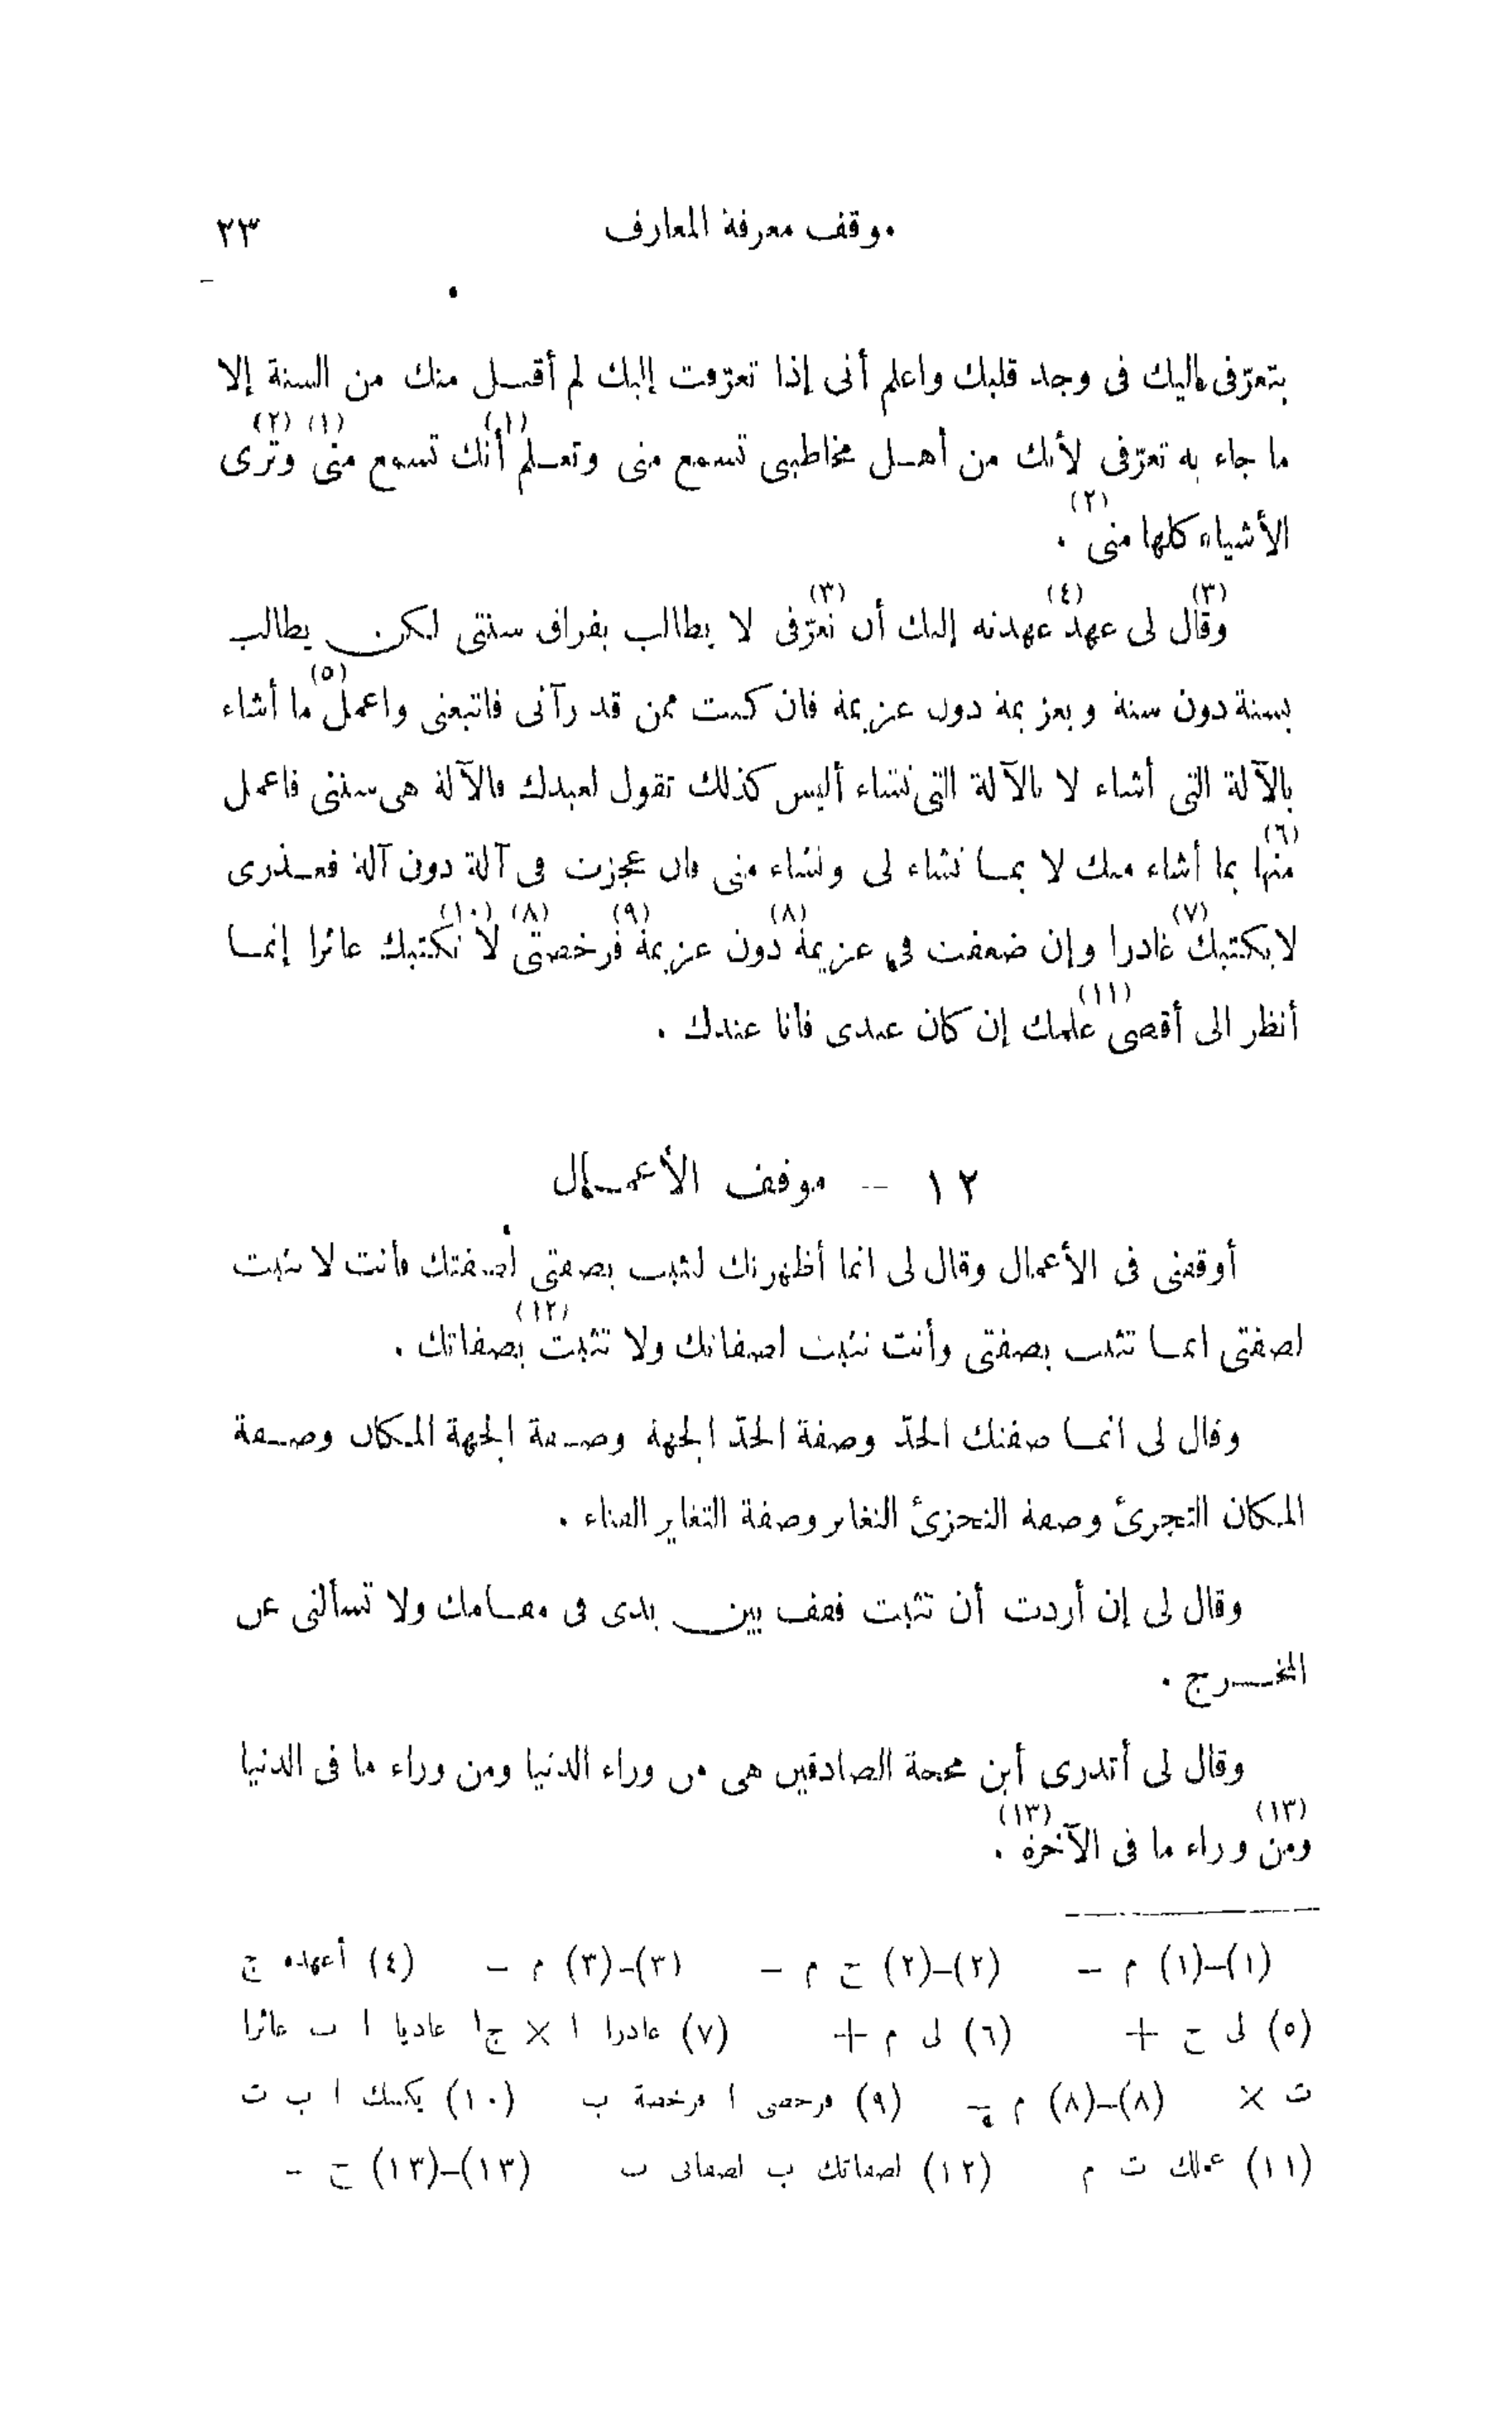 موقف معرفة المعارف ٢٣
بتعرّفى إليك فى وجد قلبك واعلم أنى إذا تعرّفت إليك لم أقبل منك من السنة إلا
ما جاء به تعرّفى لأنك من أهل مخاطبى تسمع منى وتعلم (١) أنك تسمع منى (١) (٢) وترى
الأشياء كلها منى (٢) .
(٣) وقال لى عهد (٤) عهدته إليك أن تعرّفى (٣) لا يطالب بفراق سنتى لكن يطالب
بسنة دون سنة وبعزيمة دون عزيمة فان كنت ممن قد رآنى فاتبعنى واعمل (٥) ما أشاء
بالآلة التى أشاء لا بالآلة التى تشاء أليس كذلك تقول لعبدك فالآلة هى سنتى فاعمل
منها (٦) بما أشاء منك لا بما تشاء لى وتشاء منى فان عجزت فى آلة دون آلة فعذرى
لا يكتبك (٧) غادرا وإن ضعفت فى عزيمة (٨) دون عزيمة (٩) فرخصتى (٨) لا (١٠) تكتبك عاثرا إنما
أنظر الى أقصى (١١) علمك إن كان عندى فانا عندك .
١٢ — موقف الأعمال
أوقفنى فى الأعمال وقال لى انما أظهرتك لتثبت بصفتى لصفتك فأنت لا تثبت
لصفتى انما تثبت بصفتى وأنت تثبت لصفاتك ولا تثبت (١٢) بصفاتك .
وقال لى انما صفتك الحدّ وصفة الحدّ الجهة وصفة الجهة المكان وصفة
المكان التجزئ وصفة التجزئ التغاير وصفة التغاير الفناء .
وقال لى إن أردت أن تثبت فقف بين يدى فى مقامك ولا تسألنى عن
المخرج .
وقال لى أتدرى أين محجة الصادقين هى من وراء الدنيا ومن وراء ما فى الدنيا
(١٣) ومن وراء ما فى الآخرة (١٣) .
(١)–(١) م – (٢)–(٢) ج م – (٣)–(٣) م – (٤) أعهده ج
(٥) لى ج + (٦) لى م + (٧) غادرا ا × ج ا عاديا ا ب عاثرا
ت × (٨)–(٨) م – (٩) فرخصى ا فرخصة ب (١٠) ا ب ت
(١١) عملك ت م (١٢) لصفاتك ب لصفاتى ت (١٣)–(١٣) ج –